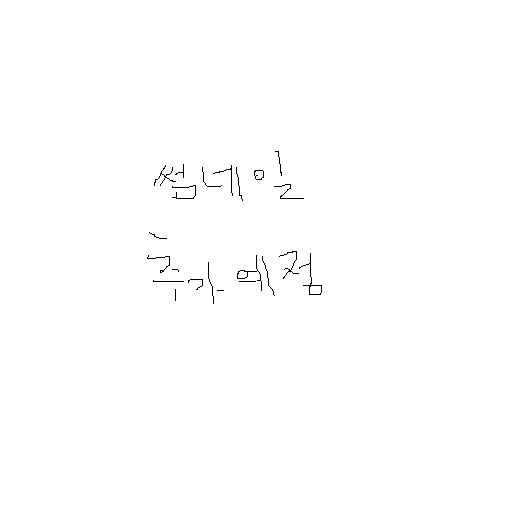 썸네일
추가예정